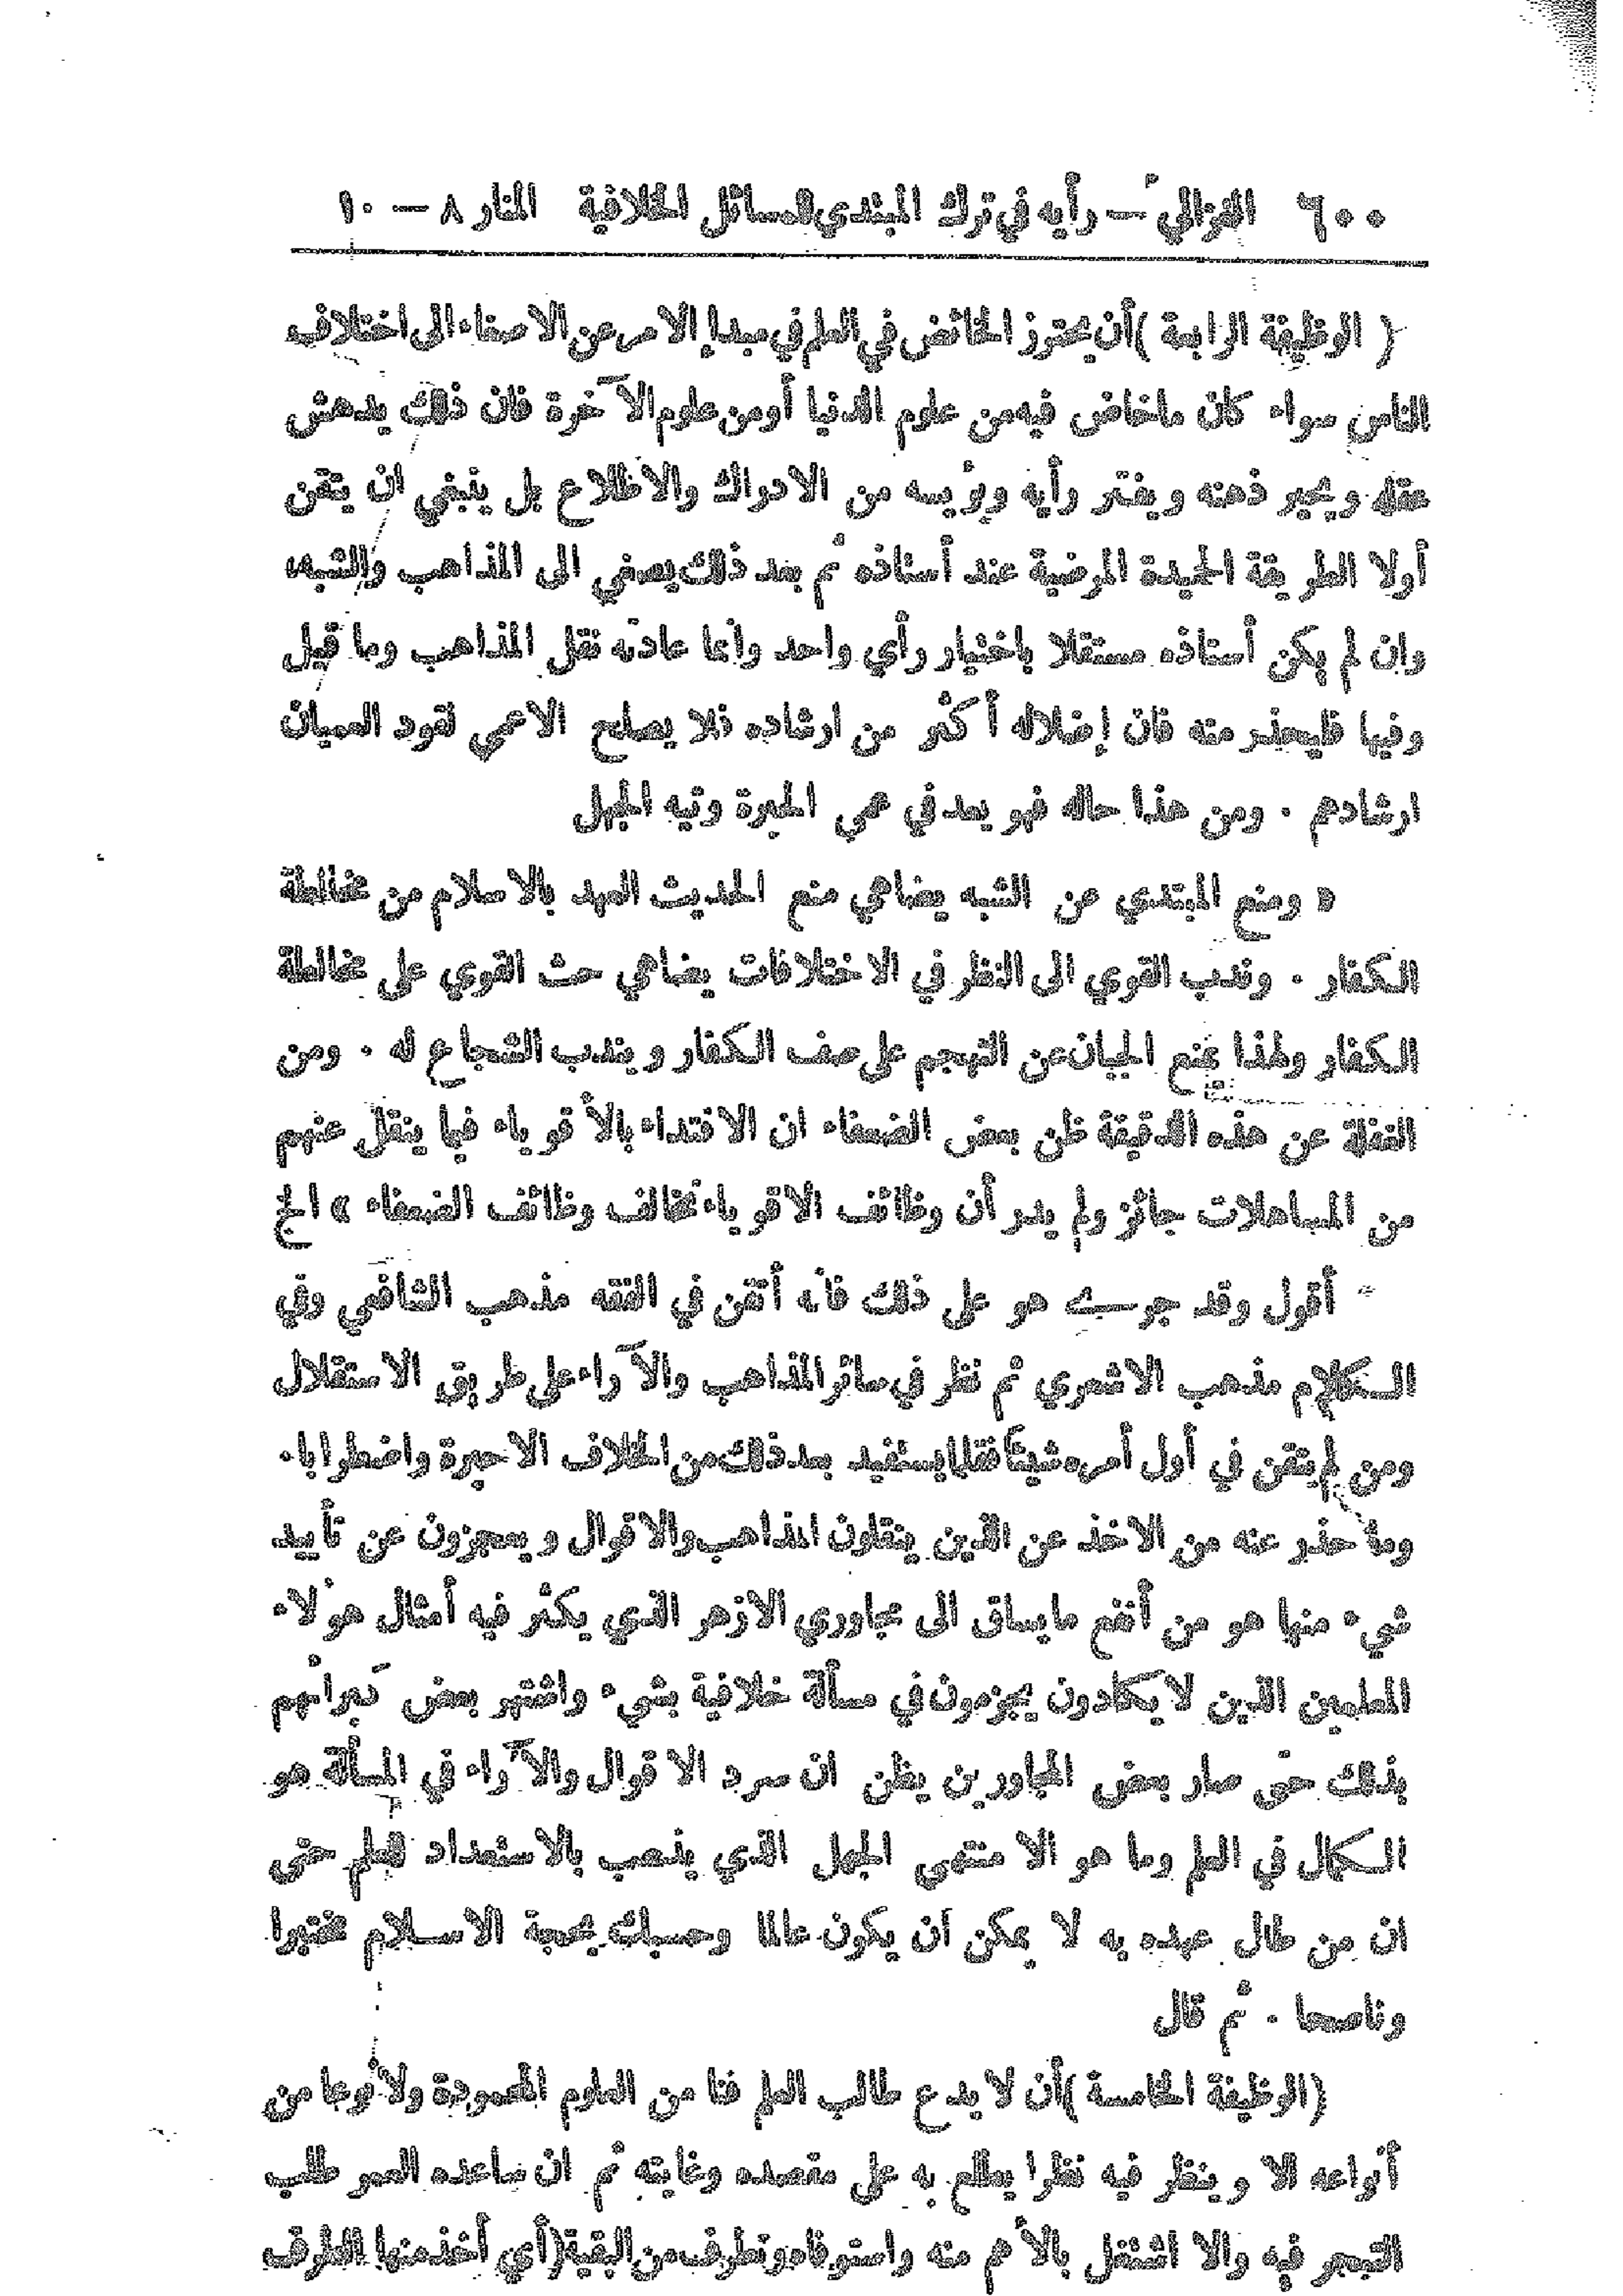 ٦٠٠ الغزالي – رأيه في ترك المبتدي المسائل الخلافية المنار ٨ – ١٠
( الوظيفة الرابعة ) أن يحترز الخائض في العلم في مبدإ الامر عن الاصغاء الى اختلاف
الناس سواء كان ماخاض فيه من علوم الدنيا أو من علوم الآخرة فان ذلك يدهش
عقله ويحير ذهنه ويفتر رأيه ويؤيسه من الادراك والاطلاع بل ينبغي ان يتقن
أولا الطريقة الحميدة المرضية عند أستاذه ثم بعد ذلك يصغي الى المذاهب والشبه
وان لم يكن أستاذه مستقلا باختيار رأي واحد وانما عادته نقل المذاهب وما قيل
وفيها فليحذر منه فان إضلاله أكثر من ارشاده فلا يصلح الاعمى لقود العميان
ارشادهم . ومن هذا حاله فهو يعد في عمى الحيرة وتيه الجهل
« ومنع المبتدي عن الشبه يضاهي منع الحديث العهد بالاسلام من مخالطة
الكفار . وندب القوي الى النظر في الاختلافات يضاهي حث القوي على مخالطة
الكفار ولهذا يمنع الجبان عن التهجم على صف الكفار ويندب الشجاع له . ومن
الغفلة عن هذه الدقيقة ظن بعض الضعفاء ان الاقتداء بالأقوياء فيما ينقل عنهم
من المساهلات جائز ولم يدر أن وظائف الاقوياء تخالف وظائف الضعفاء » الخ
أقول وقد جرى هو على ذلك فانه أتقن في الفقه مذهب الشافعي وفي
الكلام مذهب الاشعري ثم نظر في سائر المذاهب والآراء على طريق الاستقلال
ومن لم يتقن في أول أمره شيئا فقلما يستفيد بعد ذلك من الخلاف الا حيرة واضطرابا .
وما حذر عنه من الاخذ عن الذين ينقلون المذاهب والاقوال ويعجزون عن تأييد
شيء منها هو من أنفع مايساق الى مجاوري الازهر الذي يكثر فيه أمثال هؤلاء
المعلمين الذين لا يكادون يجزمون في مسألة خلافية بشيء واشتهر بعض كبرائهم
بذلك حتى صار بعض المجاورين يظن ان سرد الاقوال والآراء في المسألة هو
الكمال في العلم وما هو الا منتهى الجهل الذي يذهب بالاستعداد للعلم حتى
ان من طال عهده به لا يمكن أن يكون عالما وحسبك بحجة الاسلام مختبرا
وناصحا . ثم قال
(الوظيفة الخامسة ) أن لا يدع طالب العلم فنا من العلوم المحمودة ولا نوعا من
أنواعه الا وينظر فيه نظرا يطلع به على مقصده وغايته ثم ان ساعده العمر طلب
التبحر فيه والا اشتغل بالأهم منه واستوفاه وتطرف من البقية (أي أخذ منها الطرف